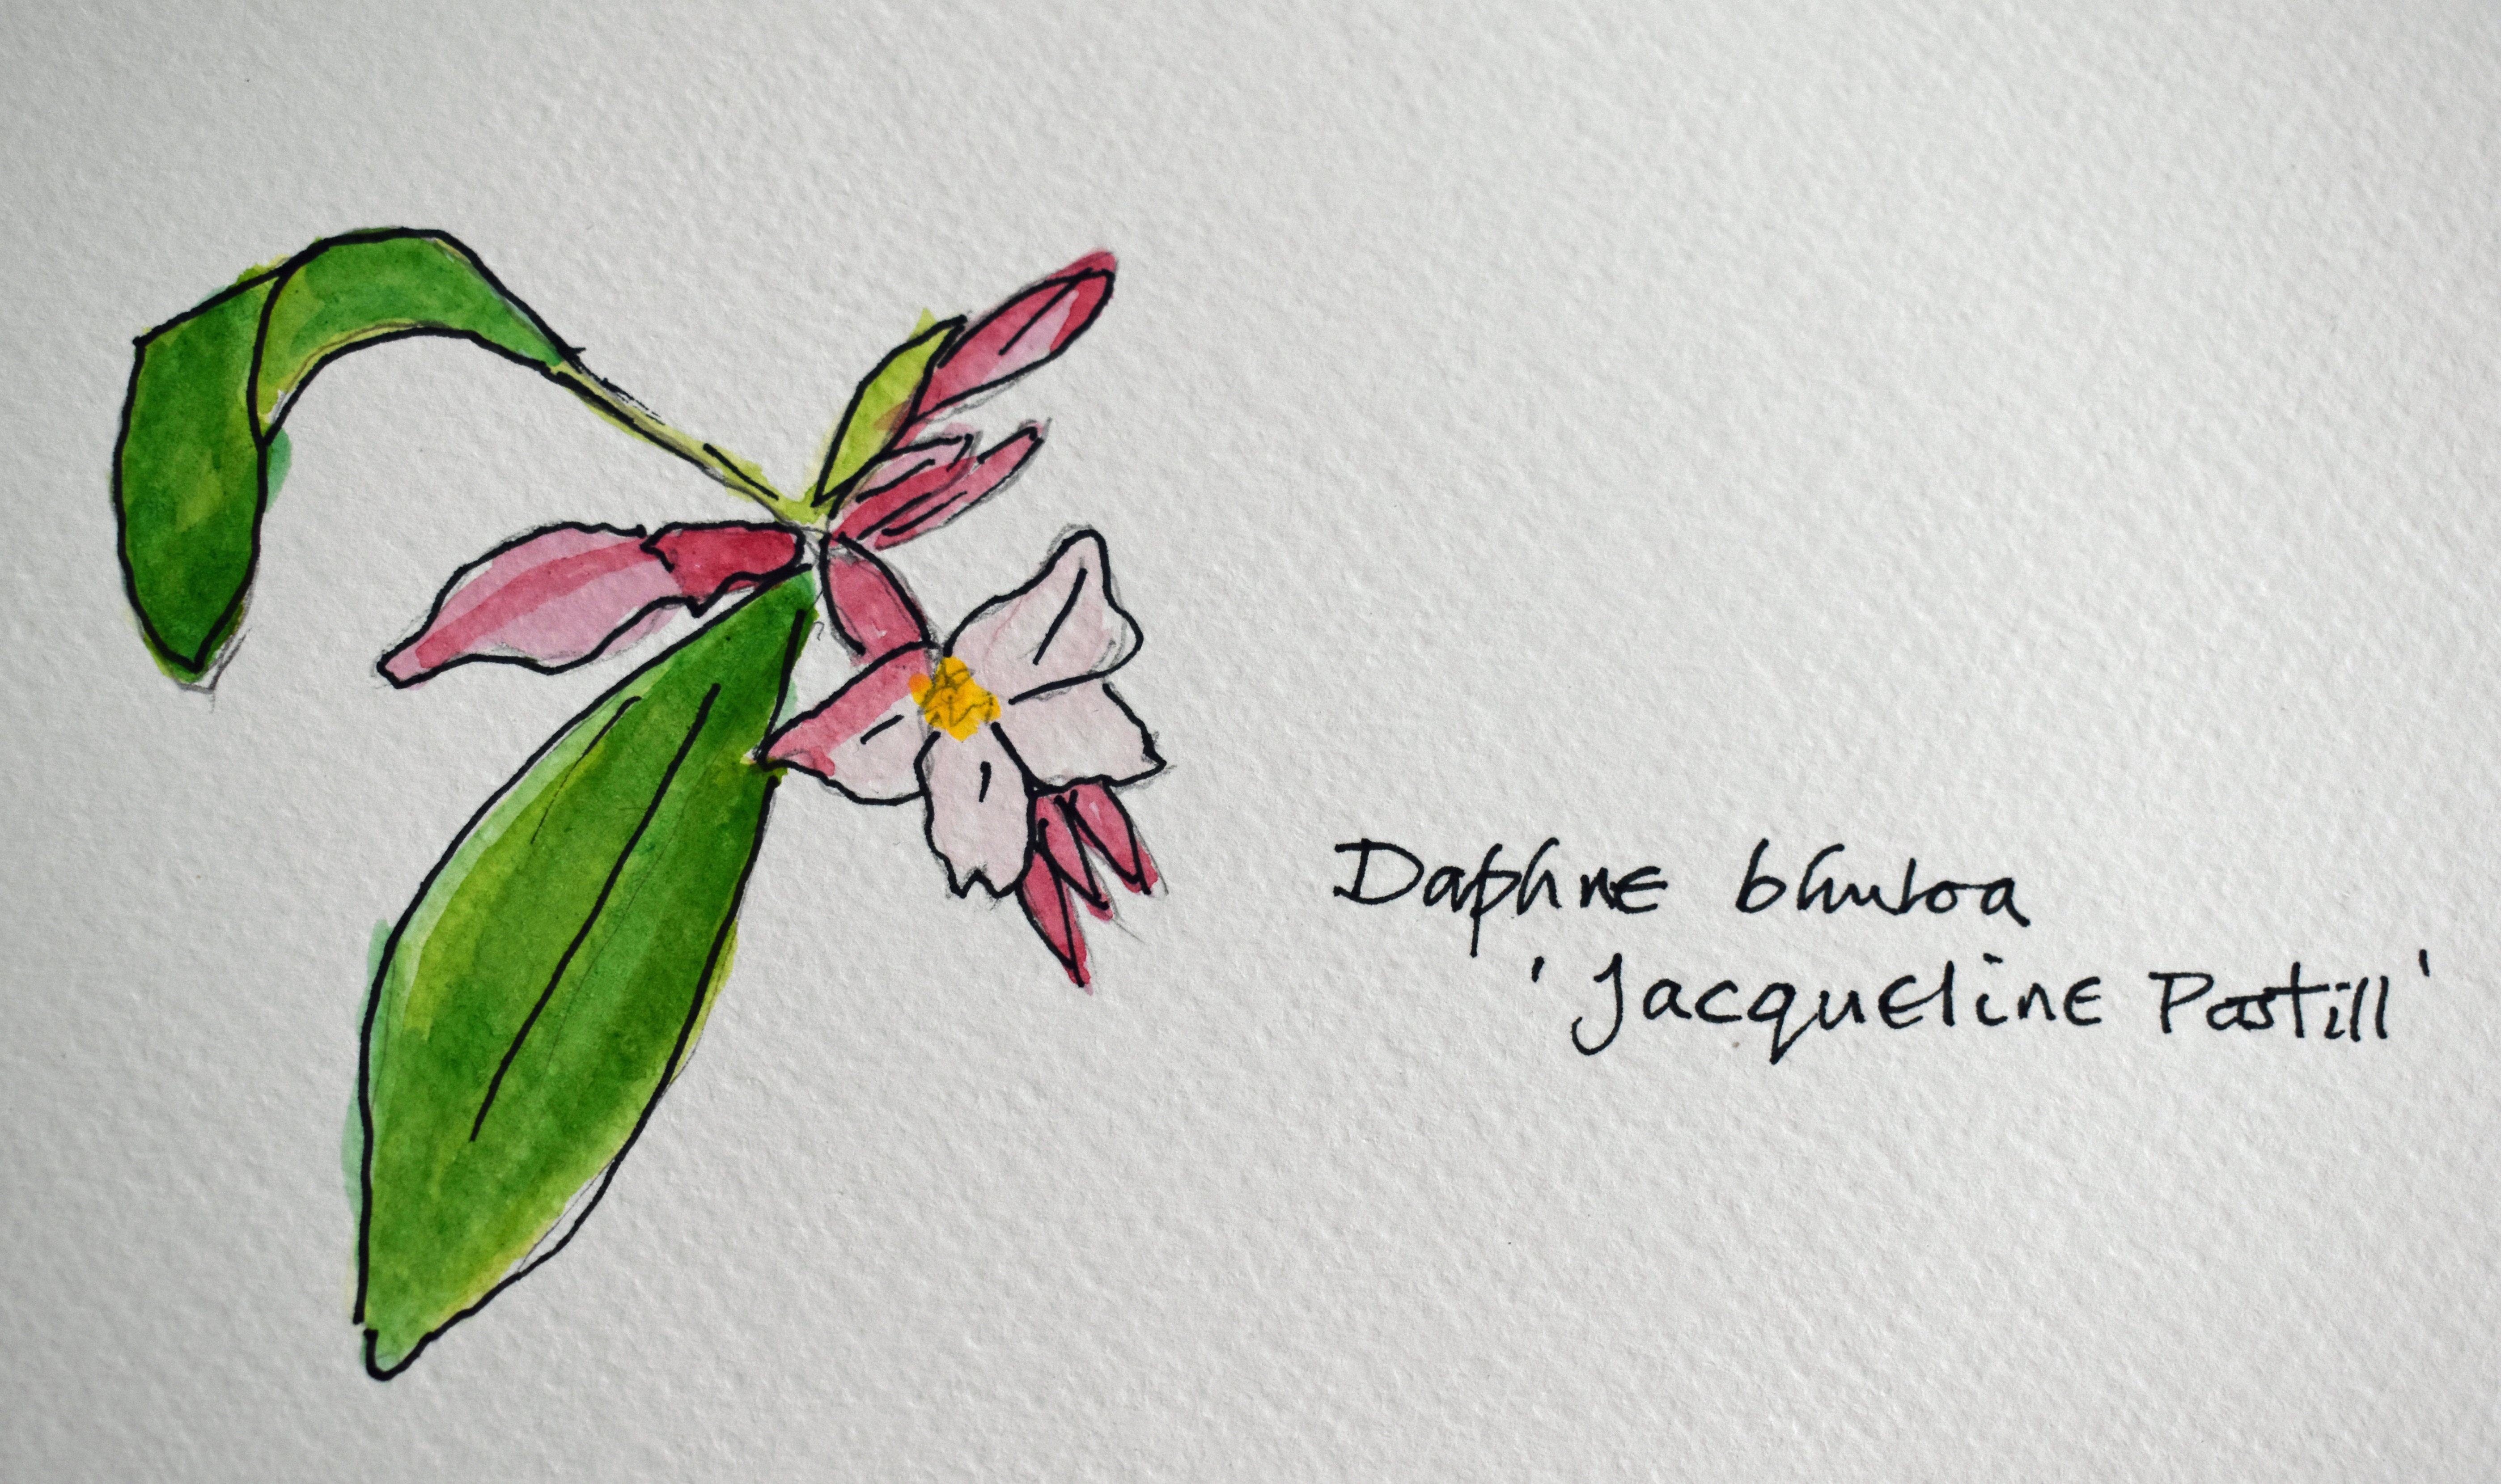 Daphne bhuloa
'Jacqueline Postill'